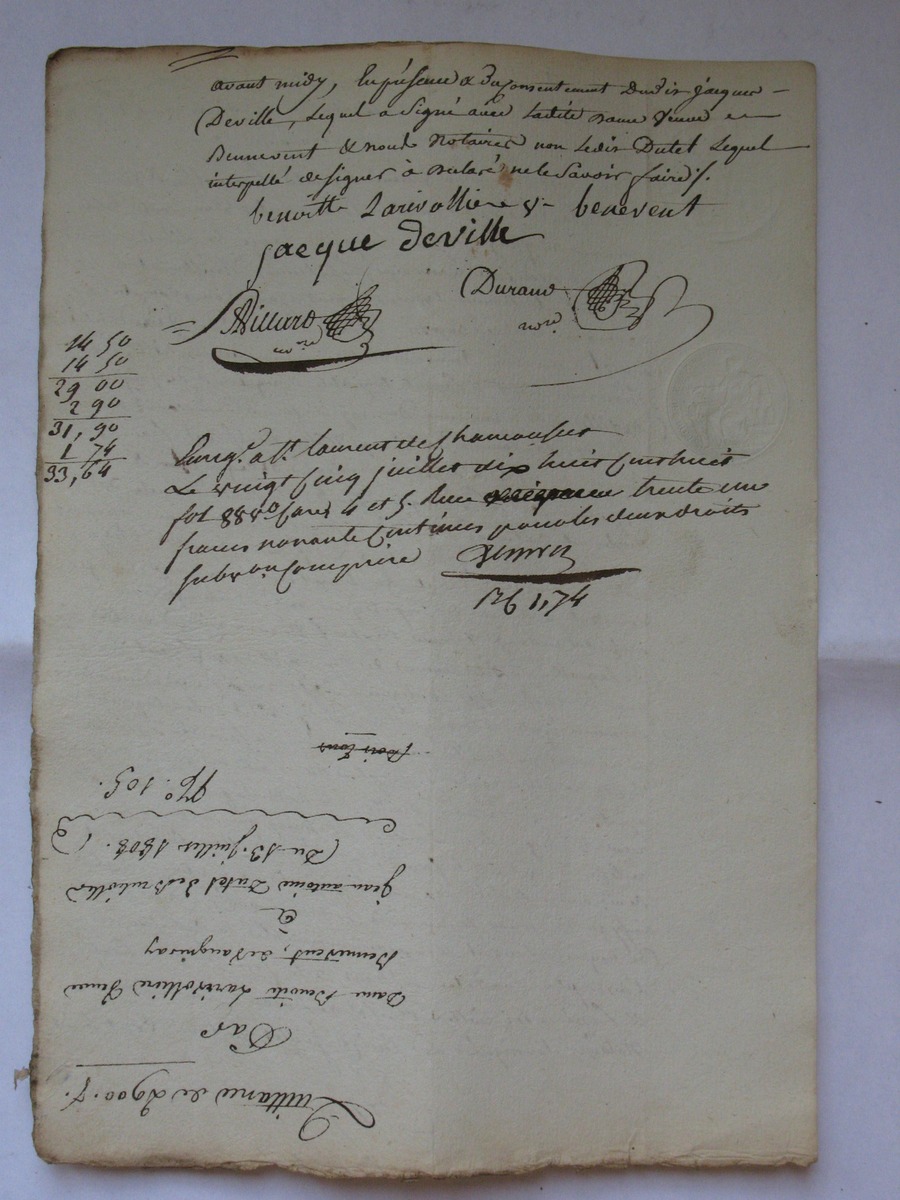 avant midy, En présence & du Consentement dudit Jacques
Deville, Lequel a Signé avec Ladite Dame Veuve
Bennevent & nous Notaires non Ledit Dutel Lequel
interpellé de signer a declaré ne le Savoir faire ./.
benoitte Larivollier ve benevent
jacque deville
Durand
nore
Billard
nore
14 50
14 50
29 00
2 90
31,90
1 74
33,64
Enreg. a St. Laurent de Chamousset
Le vingt Cinq juillet dix huit Cent huit
fol 88 vo Cases 4 et 5. Recu trente un
francs nonante Centimes pour les deux droits
subvon Comprise
Rb 1,74
Quittance de 2900. f.
Par
Dame Benoite Larivolliere Veuve
Bennevent, de
à
Jean antoine Dutel de Brullioles
(Du 13. Juillet 1808. )
No. 105.